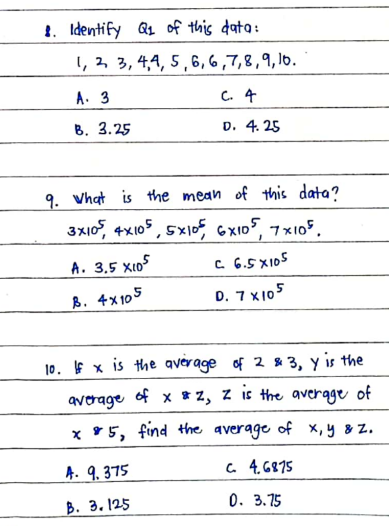 8. Identify Q1 of this data:
1, 2, 3, 4,4, 5, 6, 6, 7, 8, 9, 10.
A. 3 C. 4
B. 3.25 D. 4.25
9. What is the mean of this data?
3x10⁵, 4x10⁵, 5x10⁵, 6x10⁵, 7x10⁵.
A. 3.5 x10⁵ C. 6.5x10⁵
B. 4x10⁵ D. 7x10⁵
10. If x is the average of 2 & 3, y is the
average of x & z, z is the average of
x & 5, find the average of x, y & z.
A. 9.375 C. 4.6875
B. 3.125 D. 3.75